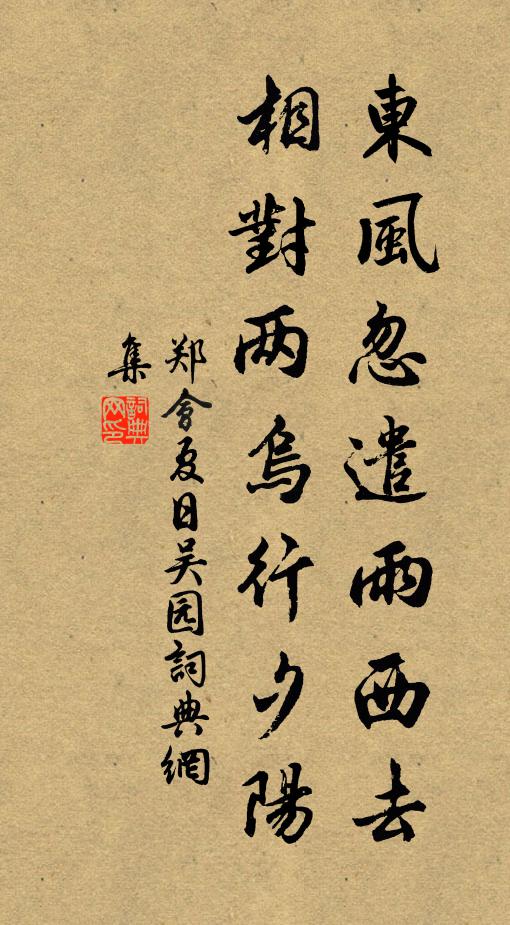 東風忽遣雨西去
相對两烏行夕陽
郑會夏日吴园詞典網
集
詞典網印